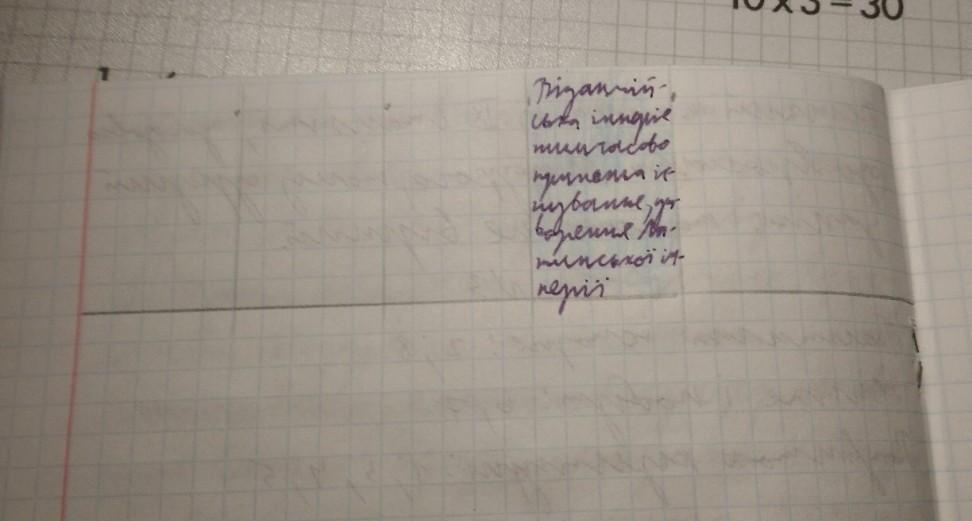 10 x 3 = 30
Візантій-
ська імперія
тимчасово
припинила іс-
нування, ут-
ворення Ла-
тинської ім-
перії